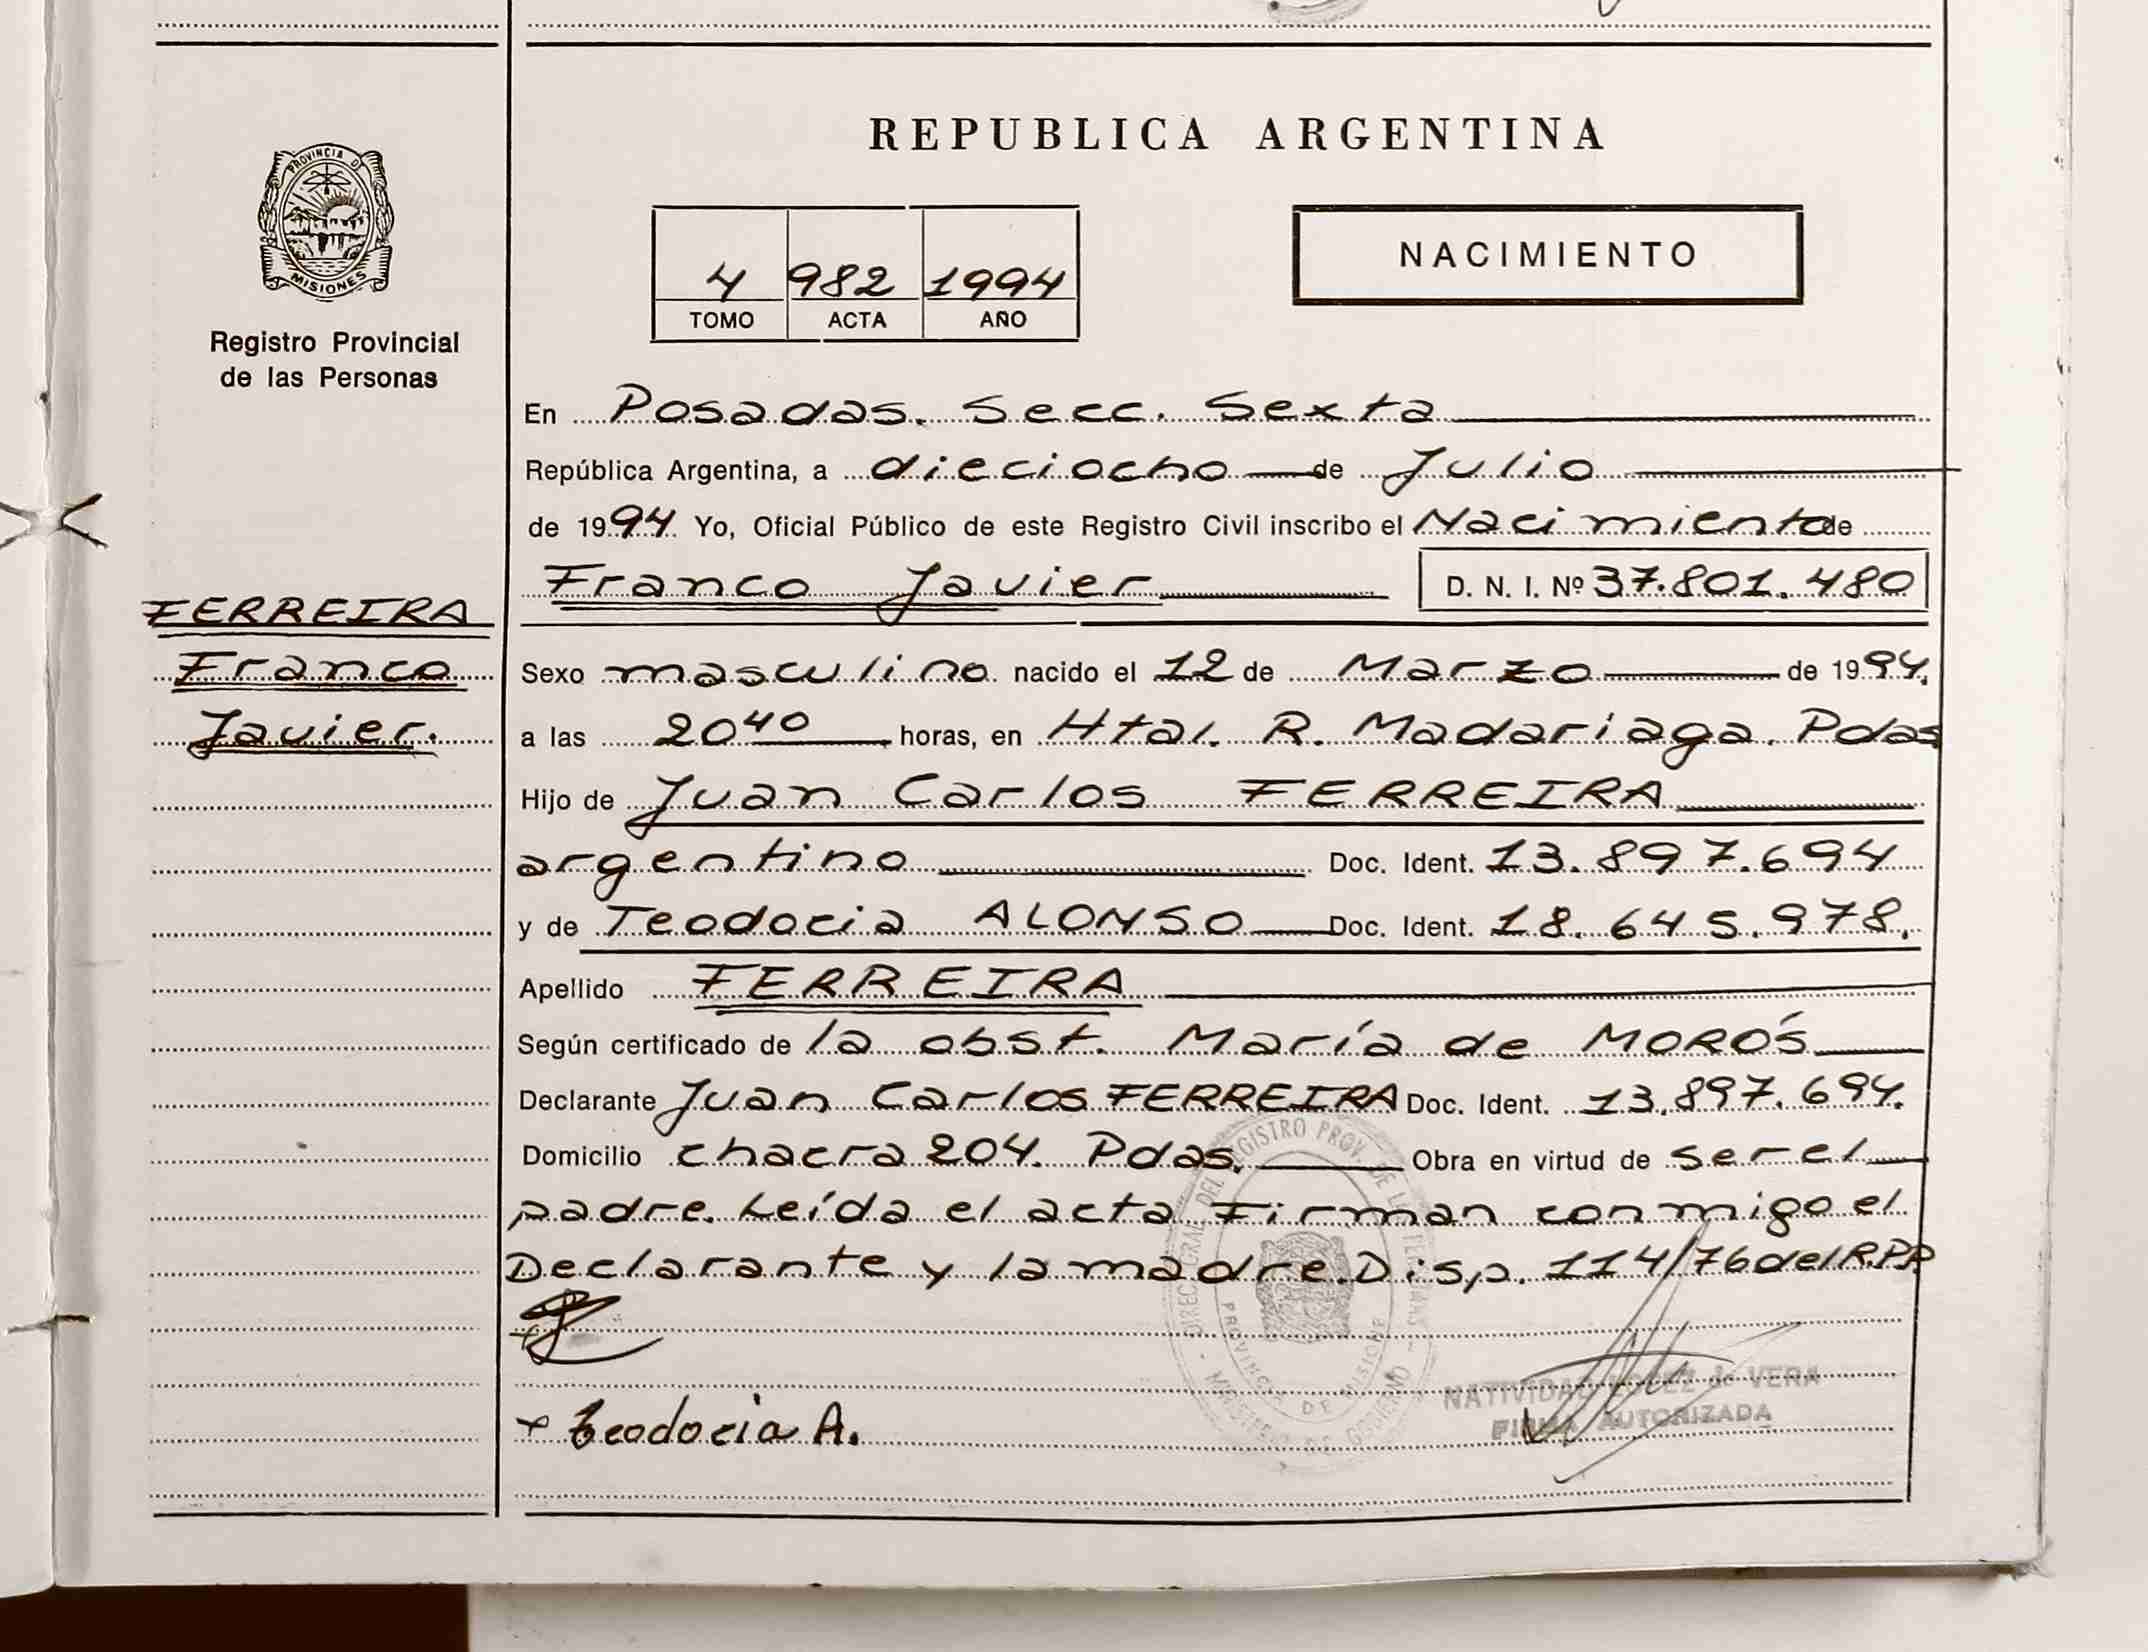 REPUBLICA ARGENTINA
PROVINCIA D
MISIONES
Registro Provincial
de las Personas
4 982 1994
TOMO ACTA AÑO
NACIMIENTO
En Posadas. Secc. Sexta
República Argentina, a dieciocho de Julio
de 1994 Yo, Oficial Público de este Registro Civil inscribo el Nacimiento de
Franco Javier D. N. I. Nº 37.801.480
FERREIRA
Franco
Javier.
Sexo masculino nacido el 12 de Marzo de 1994.
a las 20 40 horas, en Htal. R. Madariaga. Pdas
Hijo de Juan Carlos FERREIRA
argentino Doc. Ident. 13.897.694
y de Teodocia ALONSO Doc. Ident. 18.645.978.
Apellido FERREIRA
Según certificado de la obst. María de MORÓS
Declarante Juan Carlos FERREIRA Doc. Ident. 13.897.694.
Domicilio chacra 204. Pdas. Obra en virtud de ser el
padre. Leída el acta Firman conmigo el
Declarante y la madre. Disp. 114/76 del R.P.P.
DEL REGISTRO PROV. DE
PROVINCIA DE MISIONE
MINISTERIO DE GOBIERNO
Teodocia A.
NATIVIDAD LOPEZ de VERA
FIRMA AUTORIZADA